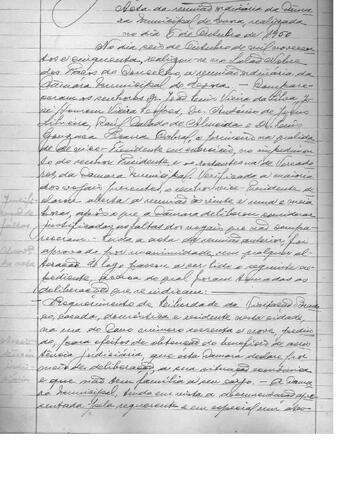 Acta da reunião ordinária da Câma-
ra Municipal de realizada
no dia 6 de Outubro de 1950
No dia seis de Outubro de mil novecen-
tos e cinquenta, realizou-se no Salão Nobre
dos Paços do Concelho, a reunião ordinária da
Câmara Municipal de - Compare-
ceram os senhores Dr. João Luís Vieira da Silva, 
 Vieira Lopes, Dr. António de 
 Raul de Almeida e Dr. Luís
 Cabral, o primeiro na qualida-
de de vice-Presidente em exercício, no impedimen-
to do senhor Presidente e os restantes na de Vereado-
res da Câmara Municipal. Verificada a maioria
dos vogais presentes, o senhor vice-Presidente de-
clarou aberta a reunião às vinte e uma e meia
horas, após o que a Câmara deliberou considerar
justificadas as faltas dos vogais que não compa-
receram. - Lida a acta da reunião anterior foi
aprovada por unanimidade, sem qualquer al-
teração. - E logo passou a ser lido o seguinte ex-
pediente, acerca do qual foram tomadas as
deliberações que se indicam:
- Requerimento de da Visitação 
 casada, doméstica e residente nesta cidade,
na rua de número sessenta e nove, pedin-
do, para efeitos de obtenção do benefício de assis-
tência judiciária, que esta Câmara declare por
meio de deliberação, a sua situação económica
e que não tem família a seu cargo. - A Câma-
ra Municipal, tendo em vista a documentação apre-
sentada pela requerente e em especial um ates-